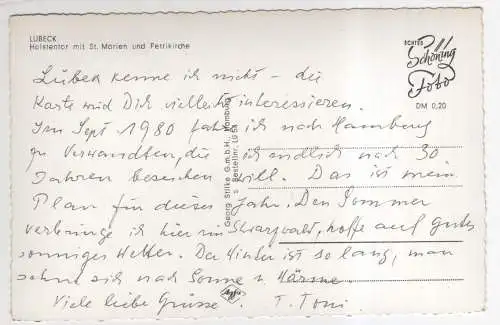 LÜBECK
Holstentor mit St. Marien und Petrikirche
ECHTES
Schöning
Foto
DM 0,20
Lübeck kenne ich nicht – die
Karte wird Dich vielleicht interessieren.
Im Sept 1980 fahr ich nach Hamburg
zu Verwandten, die ich endlich nach 30
Jahren besuchen will. Das ist mein
Plan für dieses Jahr. Den Sommer
verbringe ich hier im Schwarzwald, hoffe auf gutes
sonniges Wetter. Der Winter ist so lang, man
sehnt sich nach Sonne u. Wärme.
Viele liebe Grüsse. T. Toni.
Georg Stilke G.m.b.H., Hamburg
Bestellnr.
Agfa